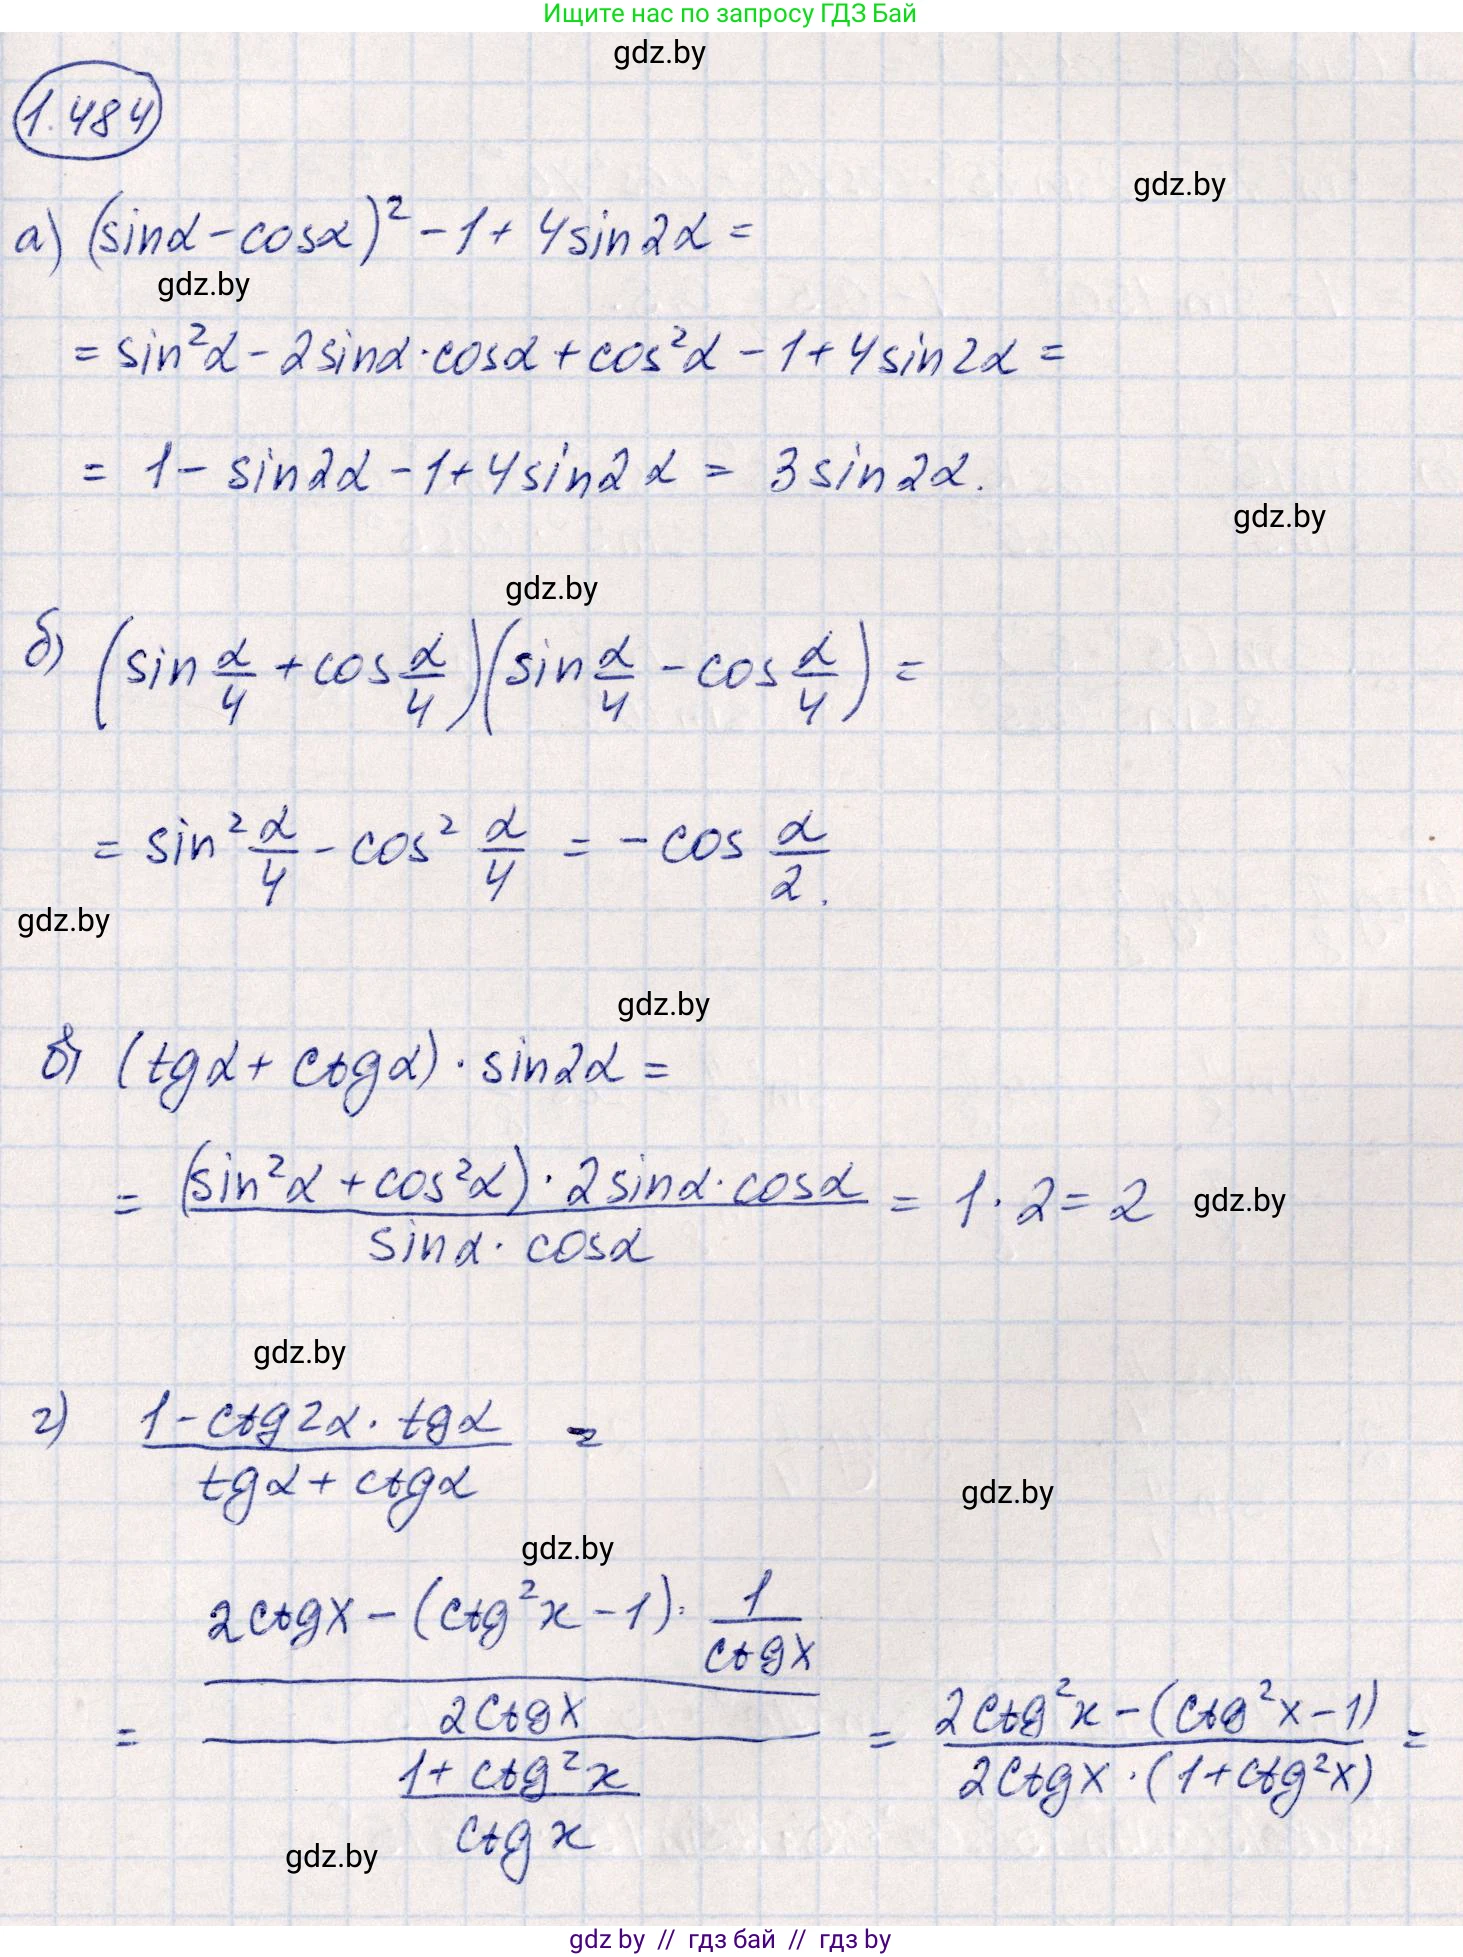 Ищите нас по запросу ГДЗ Бай
gdz.by
1.484
gdz.by
а) (sinα - cosα)² - 1 + 4sin2α =
gdz.by
= sin²α - 2sinα·cosα + cos²α - 1 + 4sin2α =
= 1 - sin2α - 1 + 4sin2α = 3sin2α.
gdz.by
gdz.by
б) (sin α/4 + cos α/4)(sin α/4 - cos α/4) =
= sin² α/4 - cos² α/4 = -cos α/2.
gdz.by
gdz.by
в) (tgα + ctgα)·sin2α =
= (sin²α + cos²α)·2sinα·cosα / sinα·cosα = 1·2 = 2
gdz.by
gdz.by
г) 1 - ctg2α·tgα / tgα + ctgα =
gdz.by
gdz.by
= 2ctgx - (ctg²x - 1)·1/ctgx / 2ctgx / 1 + ctg²x / ctgx = 2ctg²x - (ctg²x - 1) / 2ctgx·(1 + ctg²x) =
gdz.by
gdz by // гдз бай // гдз by